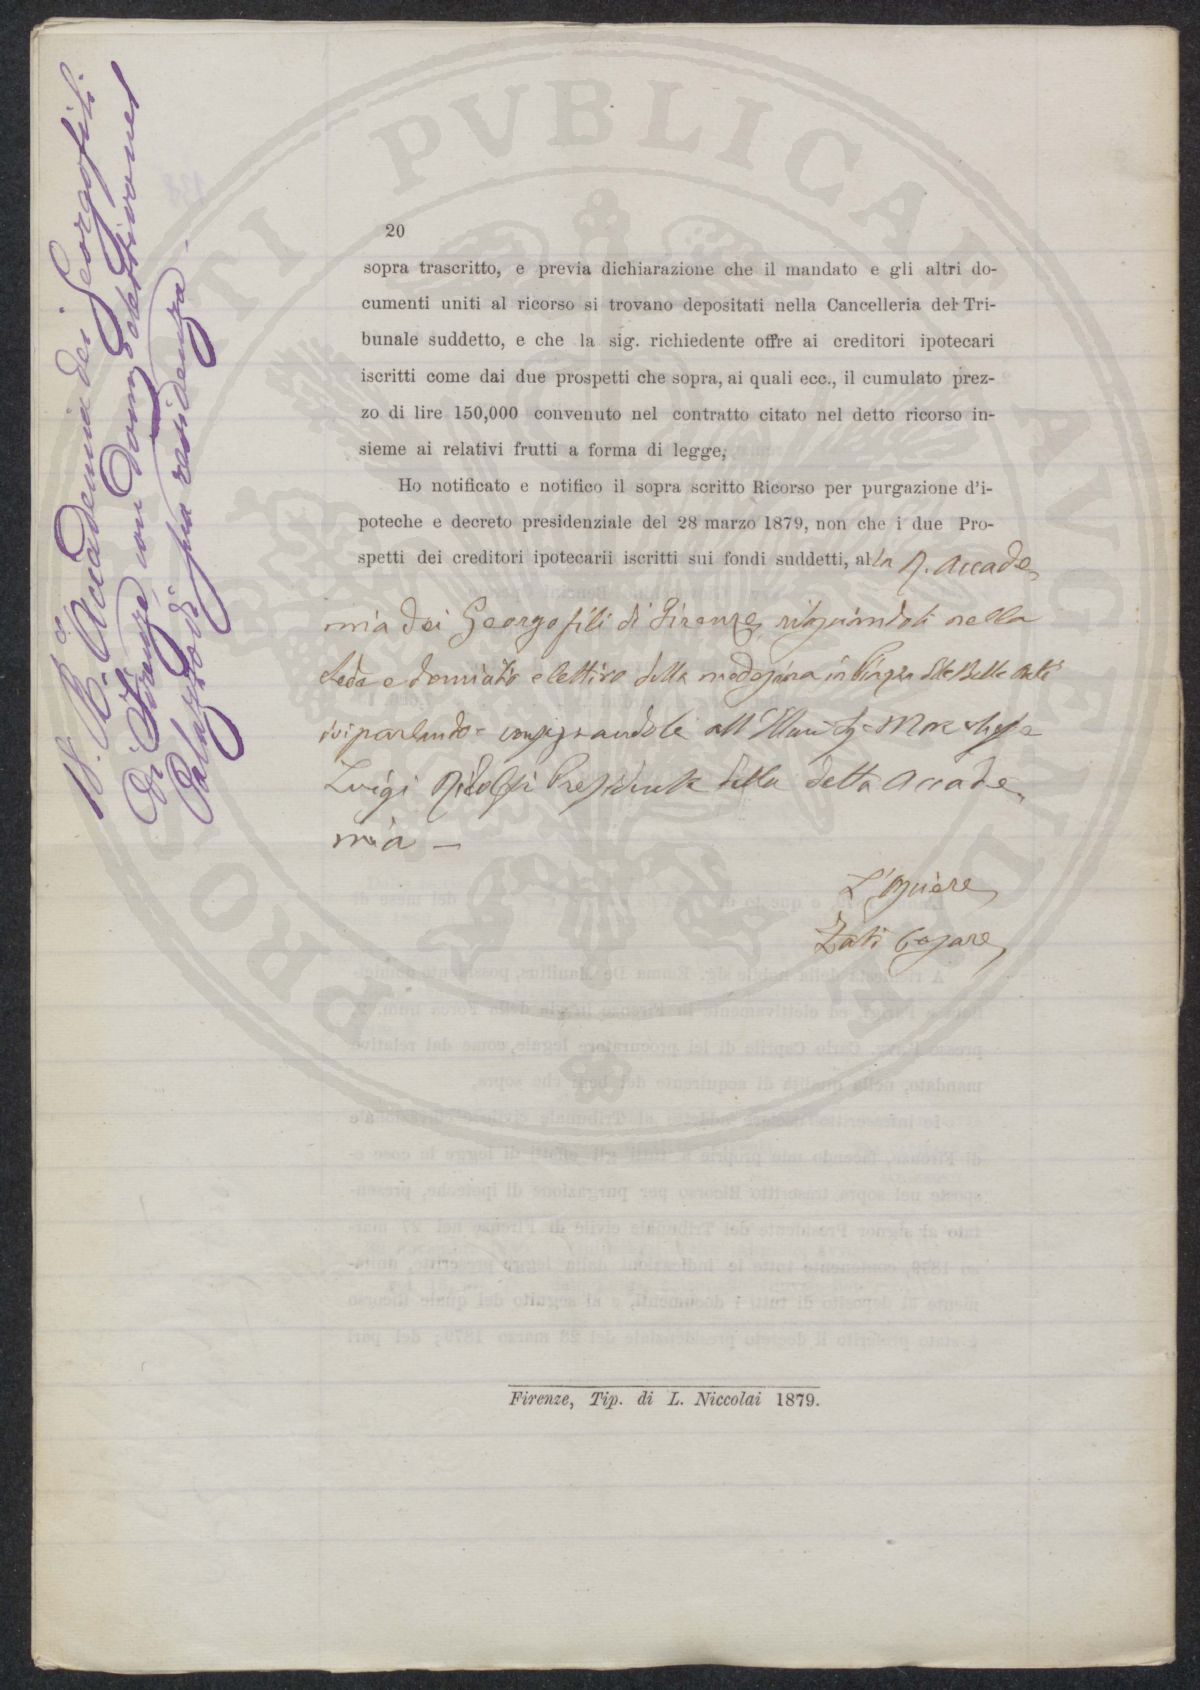 18. R.ª Accademia dei Georgofili
di Firenze, con domic.º elettivo nel
Palazzo di sua residenza.
20
sopra trascritto, e previa dichiarazione che il mandato e gli altri do-
cumenti uniti al ricorso si trovano depositati nella Cancelleria del Tri-
bunale suddetto, e che la sig. richiedente offre ai creditori ipotecari
iscritti come dai due prospetti che sopra, ai quali ecc., il cumulato prez-
zo di lire 150,000 convenuto nel contratto citato nel detto ricorso in-
sieme ai relativi frutti a forma di legge,
Ho notificato e notifico il sopra scritto Ricorso per purgazione d'i-
poteche e decreto presidenziale del 28 marzo 1879, non che i due Pro-
spetti dei creditori ipotecarii iscritti sui fondi suddetti, alla R. Accade
mia dei Georgofili di Firenze nella
Sede e domicilio elettivo della medesima in Piazza delle Belle Arti
ivi parlando e consegnandole all' Illmo Sig. Marchese
Luigi Ridolfi Presidente della detta Accade
mia —
L'Usciere
Zati Cesare
Firenze, Tip. di L. Niccolai 1879.
PROSPERITATI PVBLICAE AVGENDAE